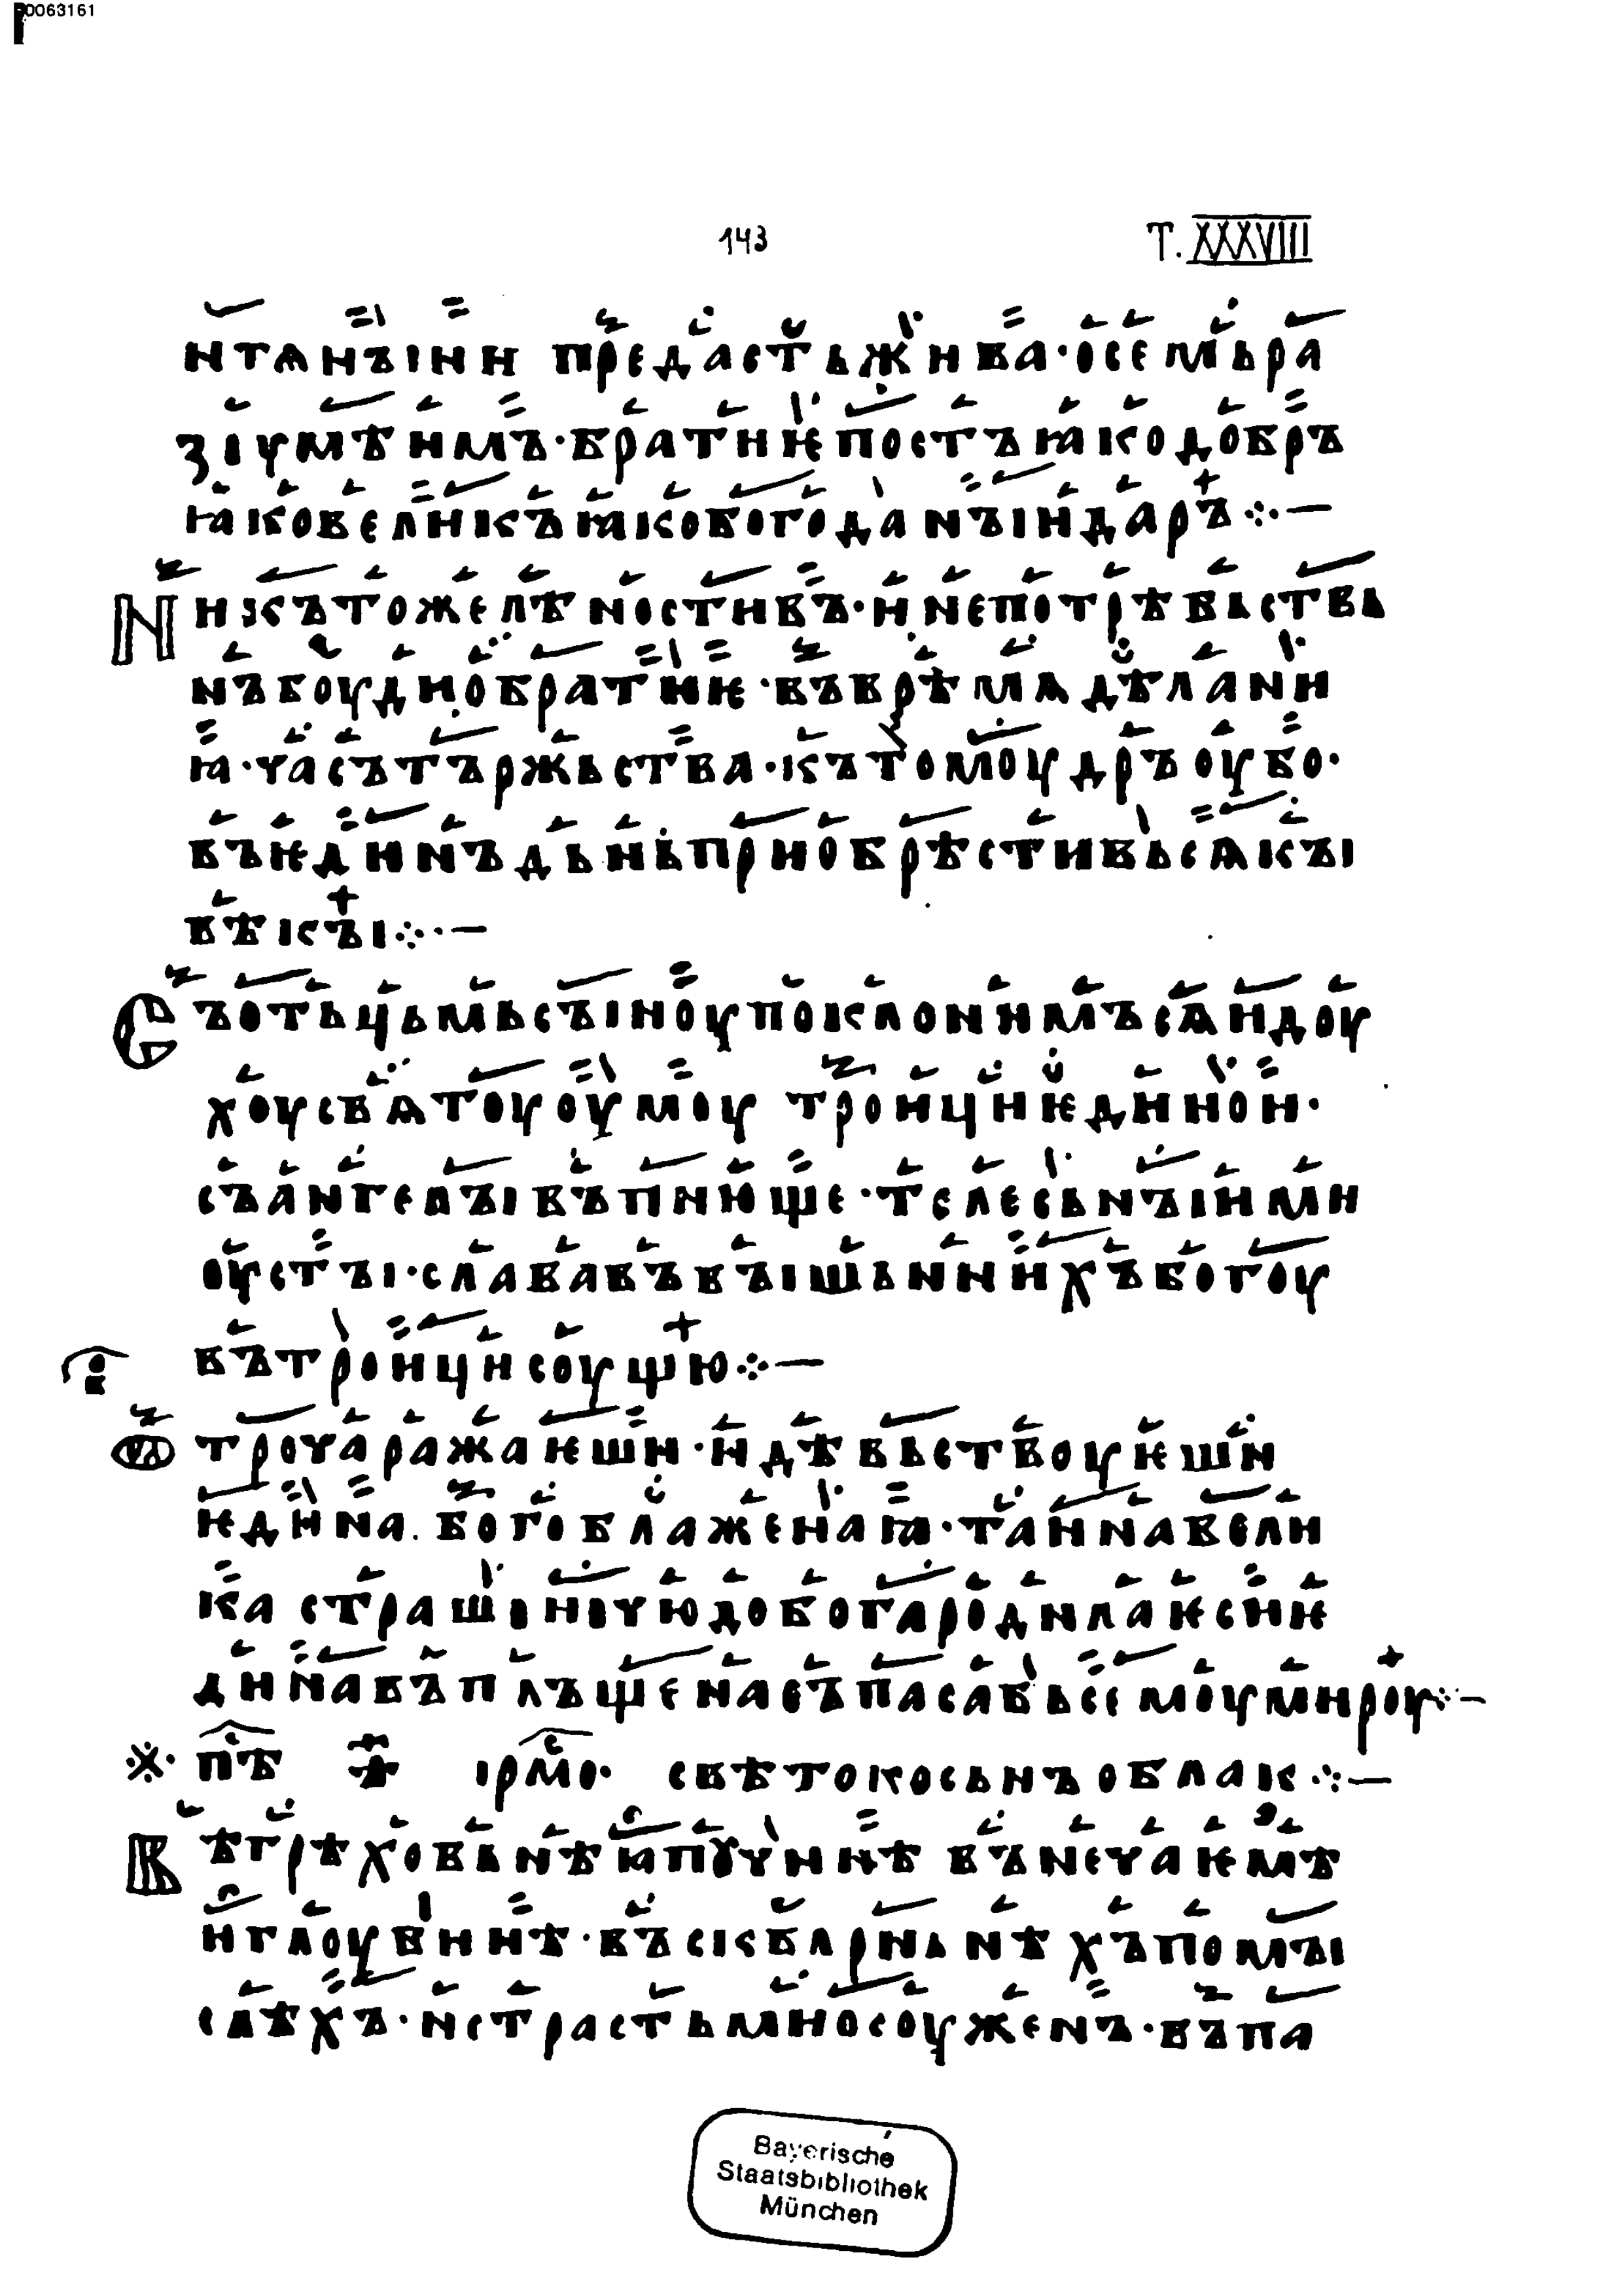 00063161
143 T. XXXVIII
нтѧнꙑи предастьжива·осемьра
зꙋмѣимъ·братиѥпостъꙗкодобръ
ꙗковеликъꙗкобогоданꙑидаръ⁘—
Н икътожелѣностивъ·инепотрѣбьствь
нъбоудиобратиѥ·въврѣмѧдѣлани
ꙗ·часътържьства·кътомоудръоубо·
въѥдинъдьньприобрѣстивьсѧкꙑ
вѣкꙑ⁘—
С ъотьцьмьсꙑноупоклонимъсѧидоу
хоусвѧтоуоумоу троициѥдинои·
съангелꙑвъпиюще·телесьнꙑими
оустꙑ·слававъвꙑшьниихъбогоу
въtроицисоущю⁘—
Ѡ трочаражаѥши·идѣвьствоуѥши
ѥдина. богоблаженаꙗ·таинавели
ка страшьночюдобогародилаѥсиѥ
динавъплъщенасъпасавьсемоумироу⁘—
※· пѣс ꙁ ірмос· свѣтоносьнъоблак⁘—
В ъгрѣховьнѣипꙋчинѣ вънечаѥмѣ
иглоубинѣ·въсквьрньнѣхъпомꙑ
слѣхъ·истрастьмиосоуженъ·въпа
Bayerische
Staatsbibliothek
München